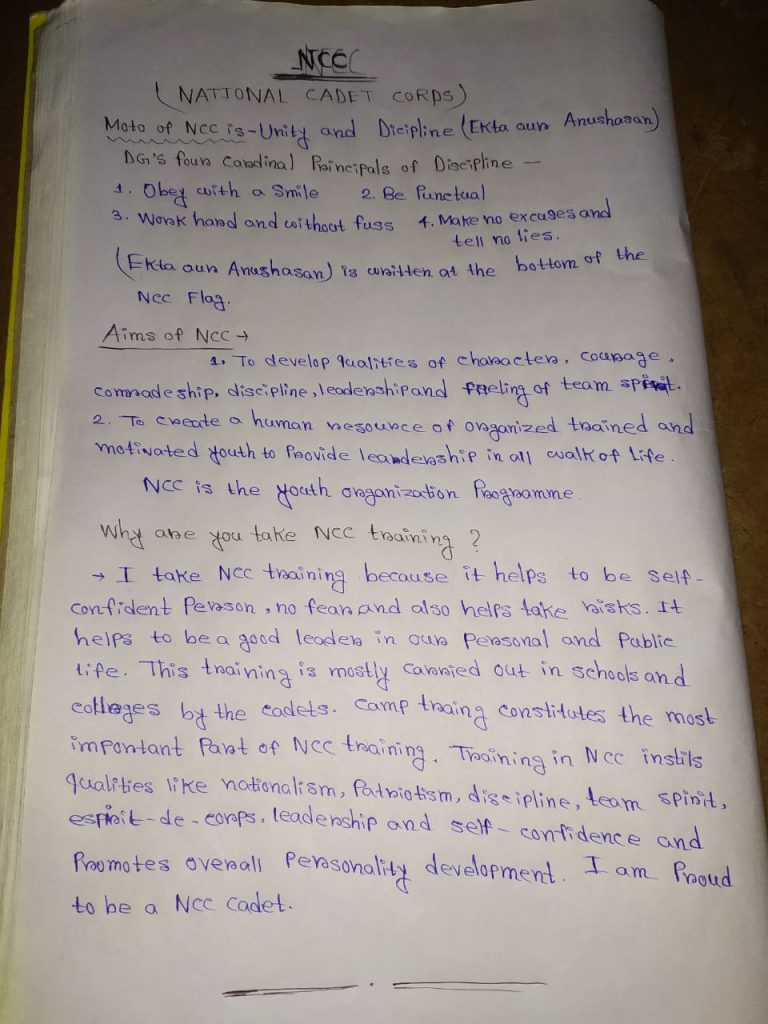 NCC
(NATIONAL CADET CORPS)
Moto of NCC is - Unity and Dicipline (Ekta aur Anushasan)
DG's four Cardinal Principals of Discipline -
1. Obey with a Smile 2. Be Punctual
3. Work hard and without fuss 4. Make no excuses and
tell no lies.
(Ekta aur Anushasan) is written at the bottom of the
NCC Flag.
Aims of NCC →
1. To develop qualities of character, courage,
comradeship, discipline, leadership and feeling of team spirit.
2. To create a human resource of organized trained and
motivated youth to Provide leardership in all walk of life.
NCC is the youth organization Programme.
Why are you take NCC training ?
→ I take NCC training because it helps to be self-
confident Person, no fear and also helps take risks. It
helps to be a good leader in our Personal and Public
life. This training is mostly carried out in schools and
colleges by the cadets. Camp traing constitutes the most
important Part of NCC training. Training in NCC instils
qualities like nationalism, Patriotism, discipline, team spirit,
esprit-de-corps, leadership and self-confidence and
Promotes overall Personality development. I am Proud
to be a NCC cadet.